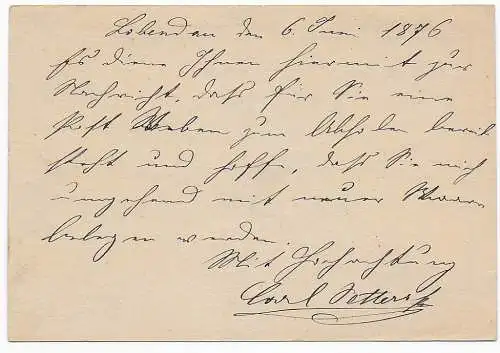 Lobendau den 6. Juni 1876
Es diene Ihnen hiermit zur
Nachricht, daß für Sie eine
Post Weben zum Abholen bereit
steht und hoffe, daß Sie mich
umgehend mit neuer Waare
belegen werden.
Mit Hochachtung
Carl